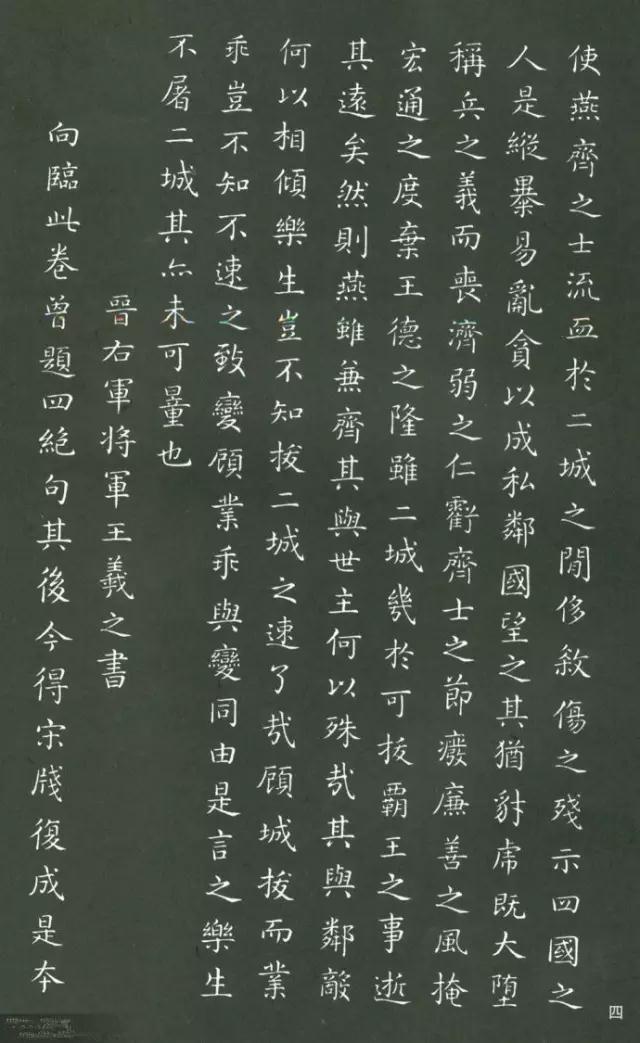 使燕齊之士流血於二城之閒侈敘傷之殘示四國之
人是縱暴易亂貪以成私鄰國望之其猶豺虎既大墮
稱兵之義而喪濟弱之仁虧齊士之節廢廉善之風掩
宏通之度棄王德之隆雖二城幾於可拔霸王之事逝
其遠矣然則燕雖兼齊其與世主何以殊哉其與鄰敵
何以相傾樂生豈不知拔二城之速了哉顧城拔而業
乖豈不知不速之致變顧業乖與變同由是言之樂生
不屠二城其亦未可量也
晉右軍將軍王羲之書
向臨此卷曾題四絕句其後今得宋牋復成是本
四